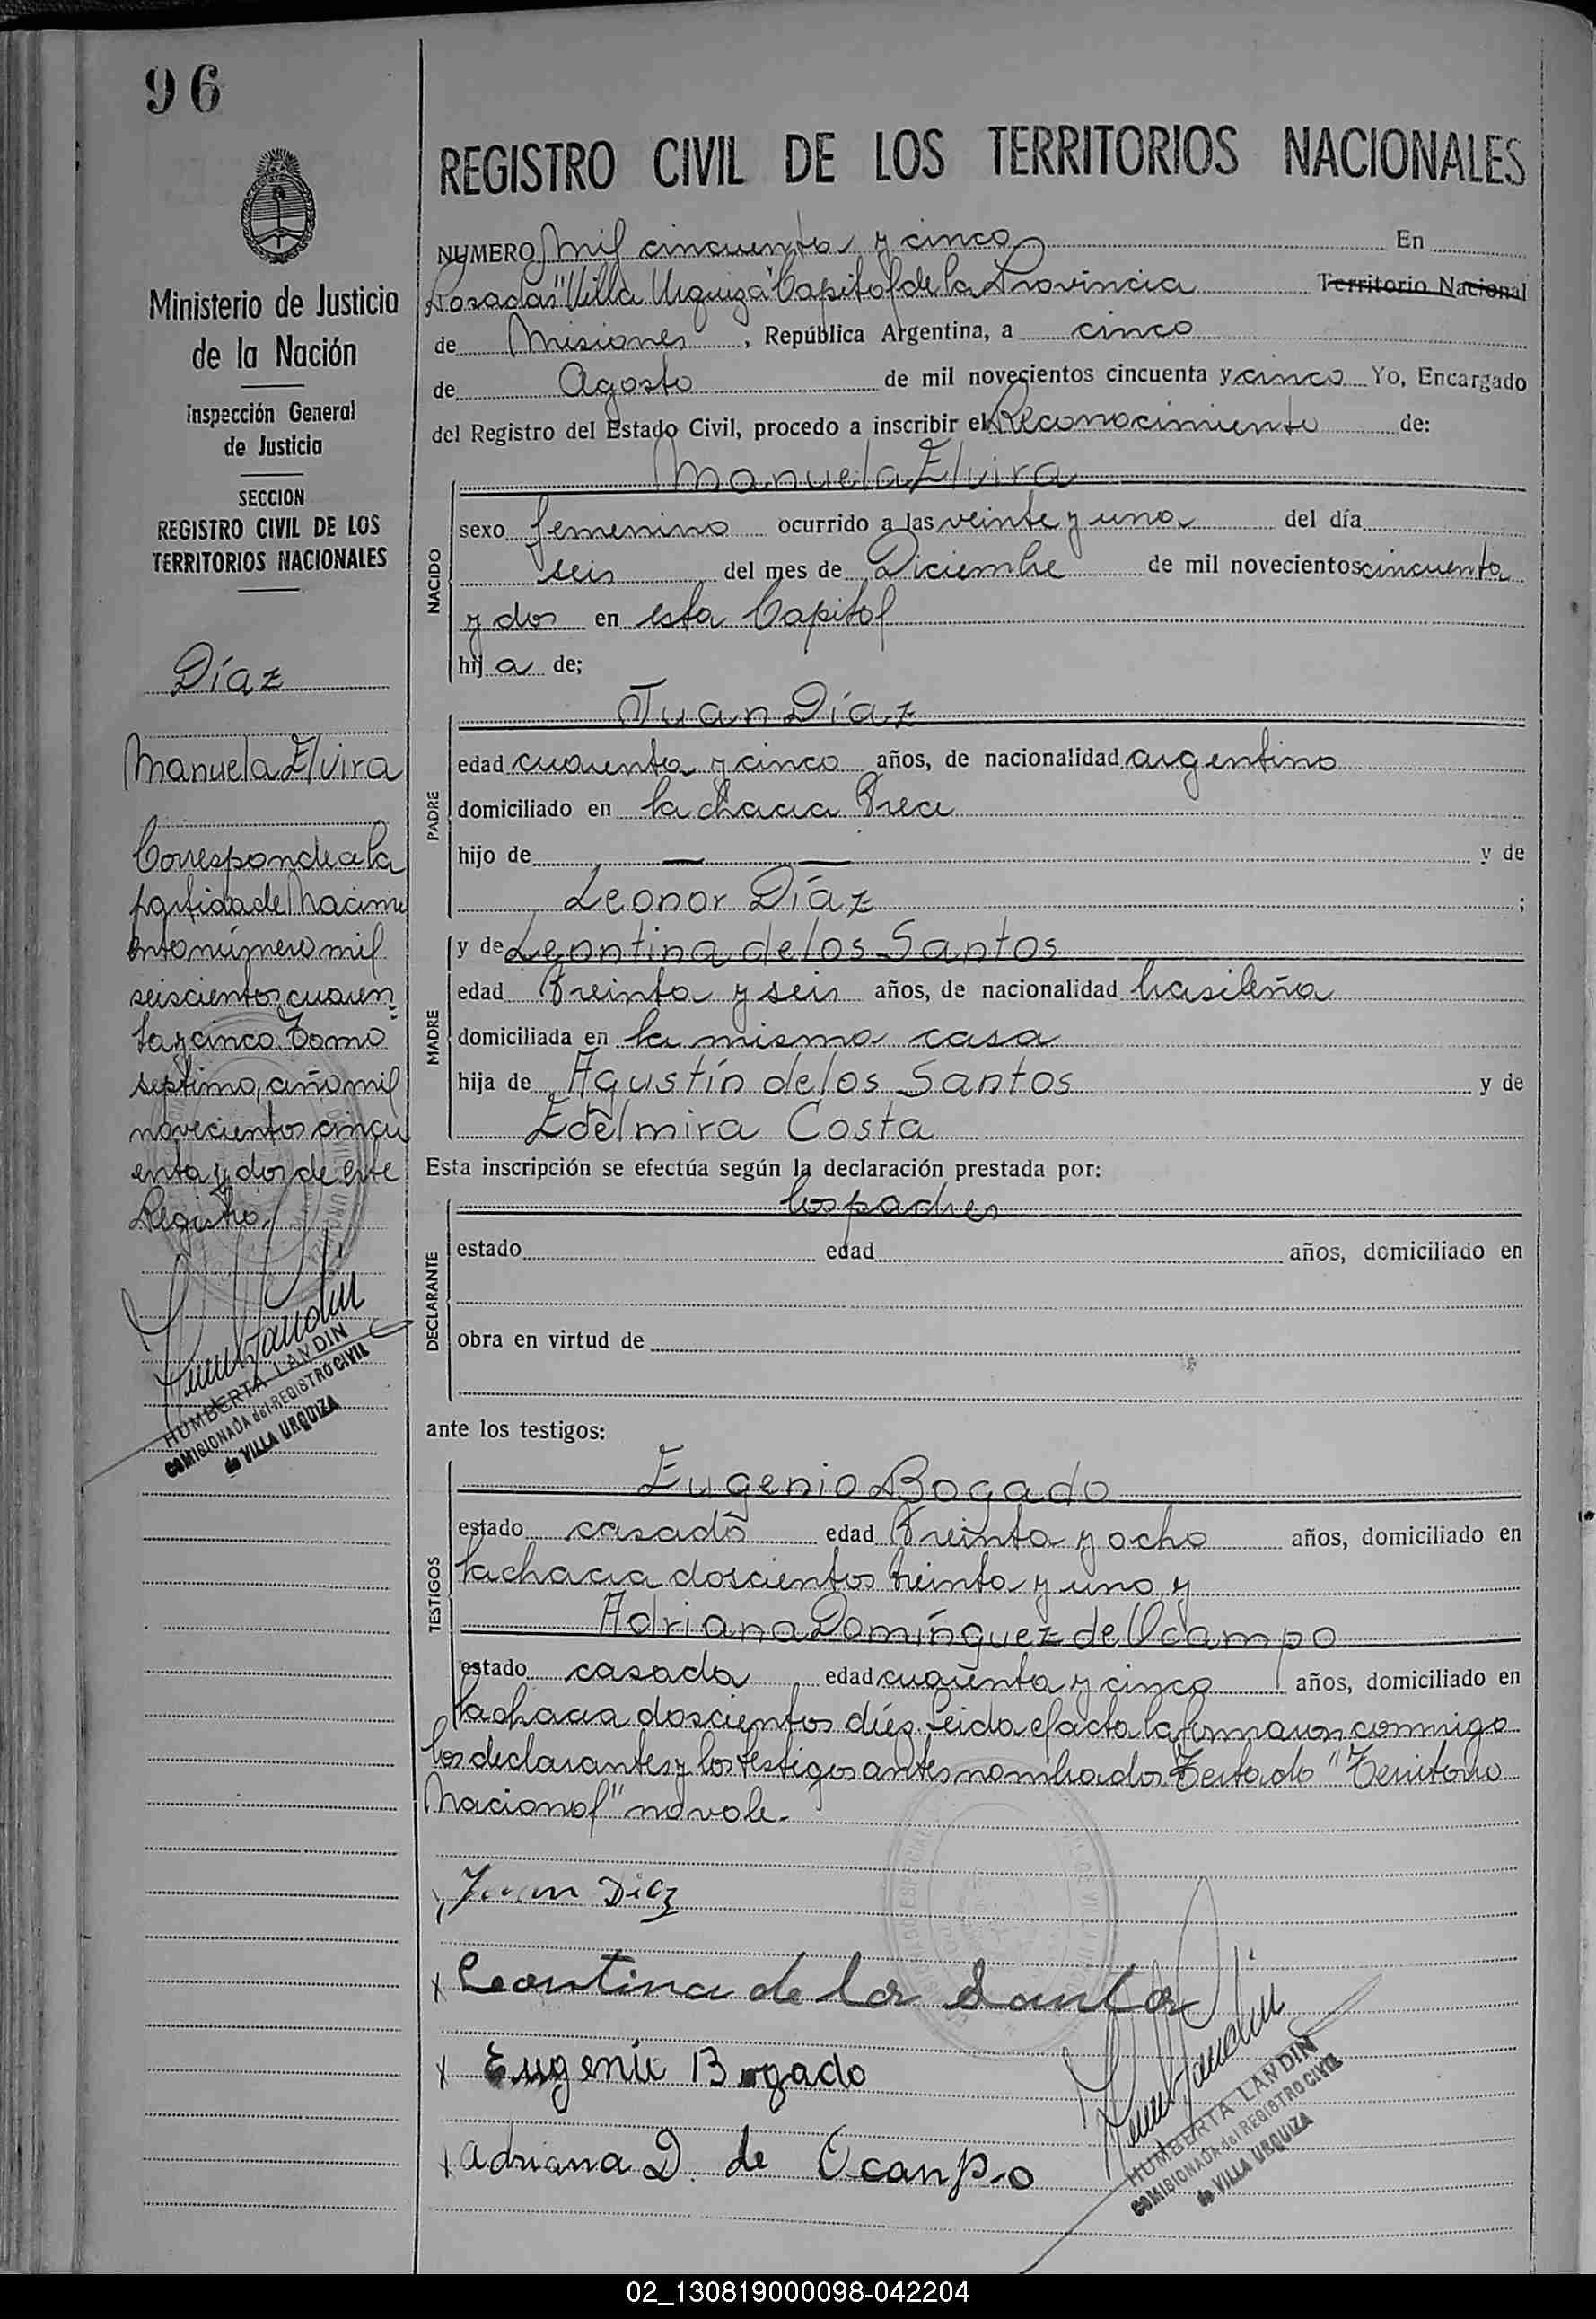 96
Ministerio de Justicia
de la Nación
Inspección General
de Justicia
SECCION
REGISTRO CIVIL DE LOS
TERRITORIOS NACIONALES
Díaz
Manuela Elvira
Corresponde a la
partida de Nacimi
ento número mil
seiscientos cuaren-
ta y cinco Tomo
septimo, año mil
novecientos cincu
enta y dos de este
Registro
HUMBERTA LANDIN
COMISIONADA del REGISTRO CIVIL
de VILLA URQUIZA
REGISTRO CIVIL DE LOS TERRITORIOS NACIONALES
NUMERO Mil cincuenta y cinco En
Posadas "Villa Urquiza" Capital de la Provincia Territorio Nacional
de Misiones, República Argentina, a cinco
de Agosto de mil novecientos cincuenta y cinco Yo, Encargado
del Registro del Estado Civil, procedo a inscribir el Reconocimiento de:
Manuela Elvira
NACIDO
sexo femenino ocurrido a las veinte y una del día
seis del mes de Diciembre de mil novecientos cincuenta
y dos en esta Capital
hija de;
Juan Díaz
PADRE
edad cuarenta y cinco años, de nacionalidad argentino
domiciliado en la chacra trece
hijo de — — y de
Leonor Díaz ;
MADRE
y de Leontina de los Santos
edad treinta y seis años, de nacionalidad brasileña
domiciliada en la misma casa
hija de Agustín de los Santos y de
Edelmira Costa
Esta inscripción se efectúa según la declaración prestada por:
los padres
DECLARANTE
estado edad años, domiciliado en
obra en virtud de
ante los testigos:
Eugenio Bogado
TESTIGOS
estado casado edad treinta y ocho años, domiciliado en
la chacra doscientos treinta y uno y
Adriana Domínguez de Ocampo
estado casada edad cuarenta y cinco años, domiciliado en
la chacra doscientos diéz Leida el acta la firmaron conmigo
los declarantes y los testigos antes nombrados Testado "Territorio
Nacional" no vale.
Juan Diaz
x Leontina de los Santos
x Eugenio Bogado
x Adriana D. de Ocanpo
HUMBERTA LANDIN
COMISIONADA del REGISTRO CIVIL
de VILLA URQUIZA
02_130819000098-042204